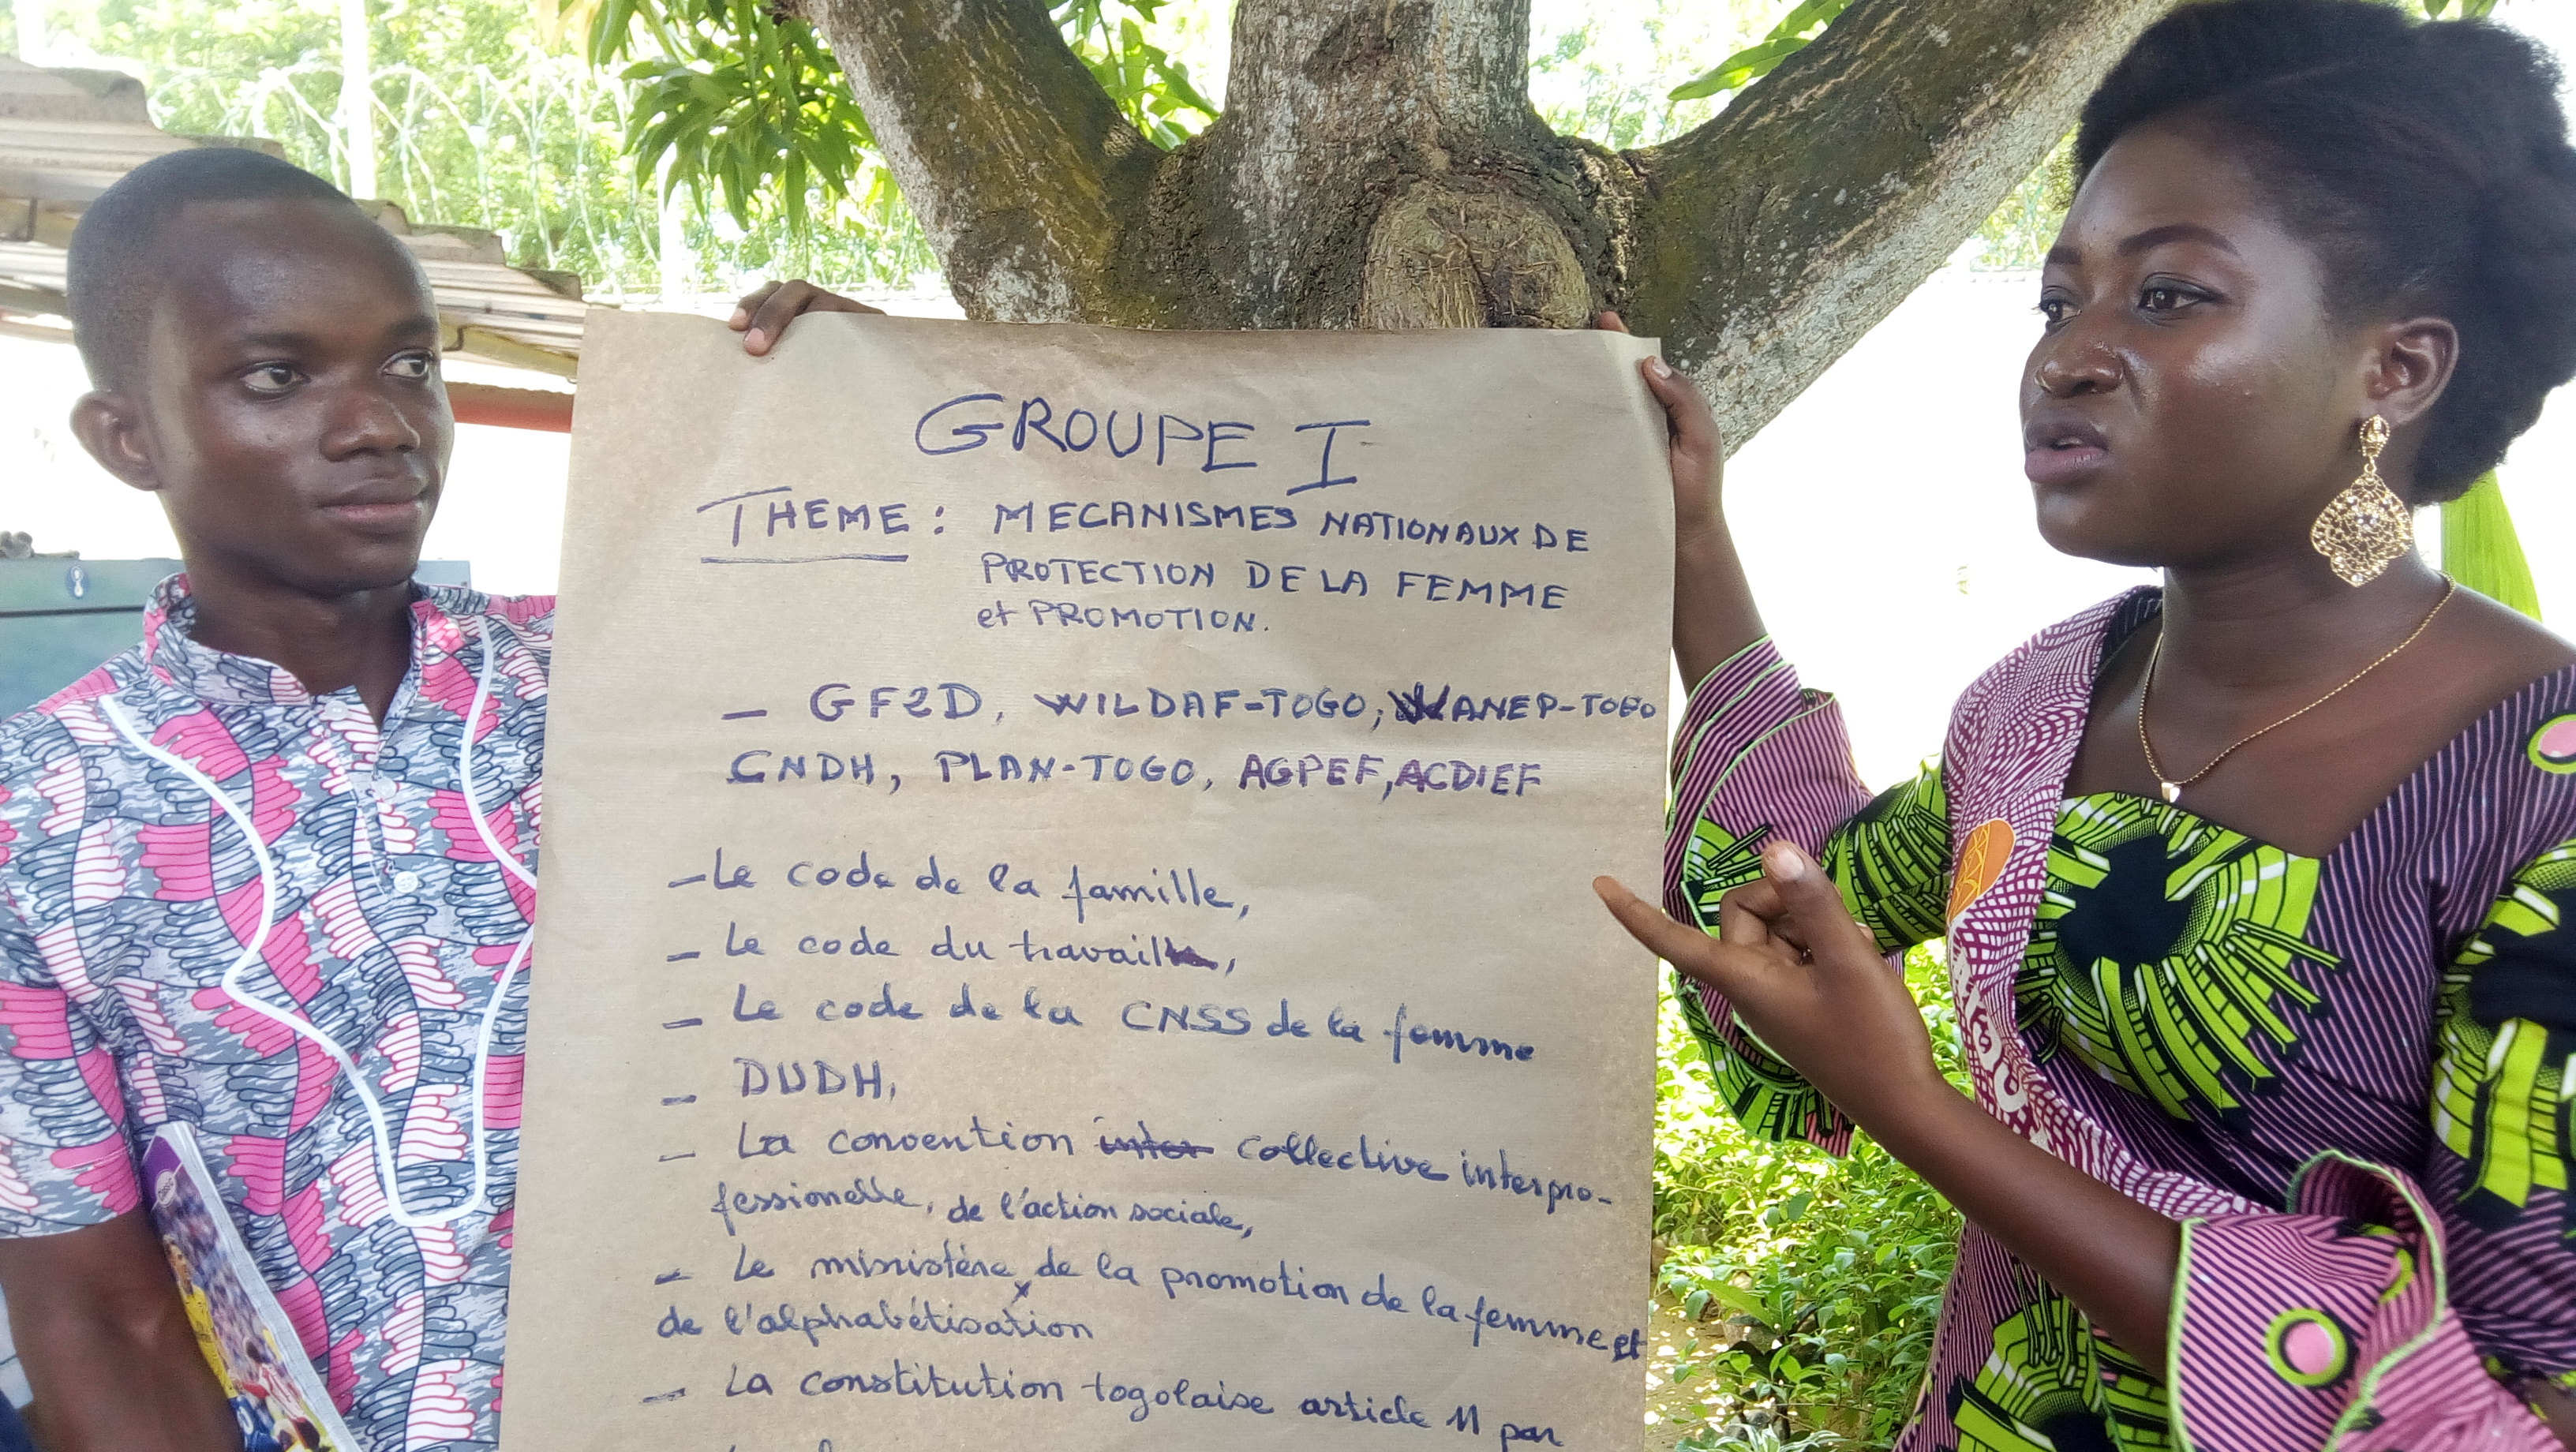 GROUPE I
THEME : MECANISMES NATIONAUX DE
PROTECTION DE LA FEMME
et PROMOTION.
- GF2D, WILDAF-TOGO, WANEP-TOGO
CNDH, PLAN-TOGO, AGPEF, ACDIEF
- Le code de la famille,
- Le code du travail,
- Le code de la CNSS de la femme
- DUDH,
- La convention inter collective interpro-
fessionelle, de l'action sociale,
- Le ministère de la promotion de la femme et
de l'alphabétisation
- La constitution togolaise article 11 par